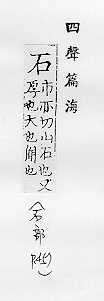 四聲篇海
石
市亦切山石也又
也大也也
(石部